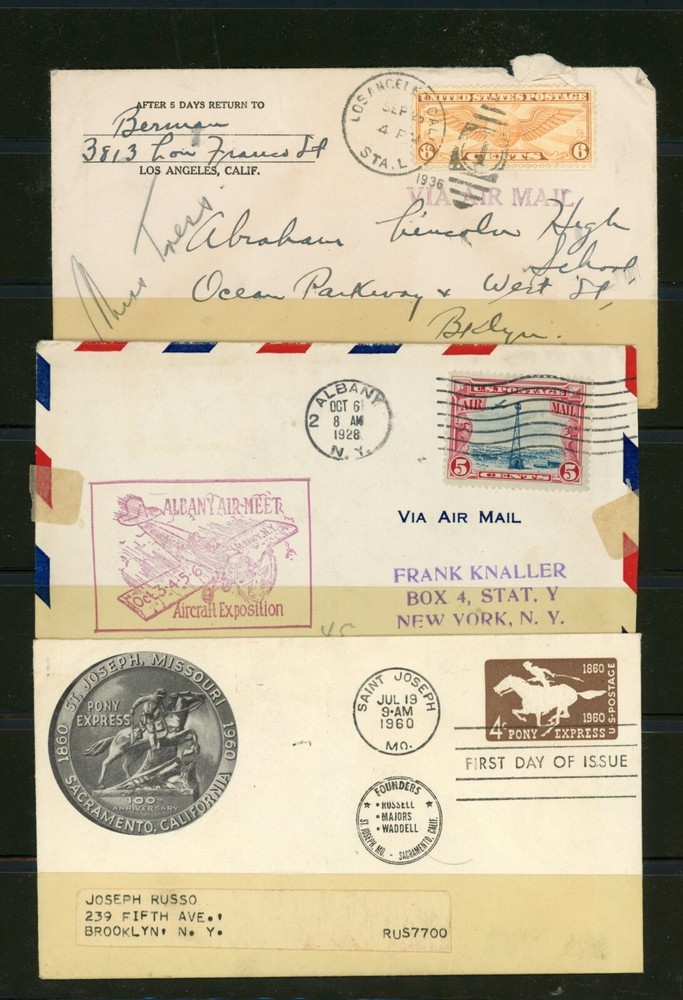 AFTER 5 DAYS RETURN TO
Berman
3813 Lou Franco St
LOS ANGELES, CALIF.
LOS ANGELES, CAL.
SEP
4 PM
STA. L
1936
UNITED STATES POSTAGE
6 CENTS 6
VIA AIR MAIL
Miss Tress
Abraham Lincoln High
School
Ocean Parkway & West St,
Bklyn.
ALBANY
OCT 6
2 8 AM
1928
N. Y.
U.S. POSTAGE
AIR MAIL
5 CENTS 5
ALBANY AIR MEET
Oct 3-4-5-6
Aircraft Exposition
VIA AIR MAIL
FRANK KNALLER
BOX 4, STAT. Y
NEW YORK, N. Y.
45
1860 ST. JOSEPH, MISSOURI 1960
PONY
EXPRESS
100th
ANNIVERSARY
SACRAMENTO, CALIFORNIA
SAINT JOSEPH
JUL 19
9-AM
1960
MO.
1860
1960
4¢ PONY EXPRESS
U.S. POSTAGE
FIRST DAY OF ISSUE
★ FOUNDERS ★
• RUSSELL
• MAJORS
• WADDELL
ST. JOSEPH, MO. - SACRAMENTO, CALIF.
JOSEPH RUSSO
239 FIFTH AVE.,
BROOKLYN, N. Y. RUS7700